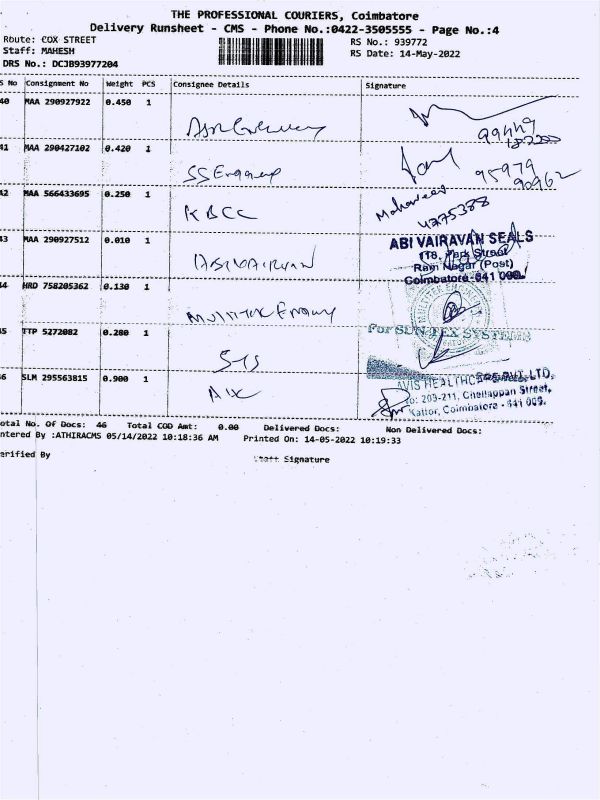 THE PROFESSIONAL COURIERS, Coimbatore
Delivery Runsheet - CMS - Phone No.:0422-3505555 - Page No.:4
Route: COX STREET
RS No.: 939772
Staff: MAHESH
RS Date: 14-May-2022
DRS No.: DCJB93977204
S No Consignment No Weight PCS Consignee Details Signature
40 MAA 290927922 0.450 1
99449
41 MAA 290427102 0.420 1
SS Enggineep
95979
90962
42 MAA 566433695 0.250 1
KBCC
Mahaveer
4275388
43 MAA 290927512 0.010 1
ABI VAIRAVAN SEALS
118, Park Street
Ram Nagar (Post)
Coimbatore-641 009.
44 HRD 758205362 0.130 1
MULTITEK Enggineep
For SUN-TEX SYSTEMS
45 TTP 5272082 0.280 1
STS
46 SLM 295563815 0.900 1
AIX
AVIS HEALTHCARE PVT. LTD,
No: 209-211, Chellappan Street,
Kattor, Coimbatore - 641 009.
otal No. Of Docs: 46 Total COD Amt: 0.00 Delivered Docs: Non Delivered Docs:
ntered By :ATHIRACMS 05/14/2022 10:18:36 AM Printed On: 14-05-2022 10:19:33
erified By
Staff Signature